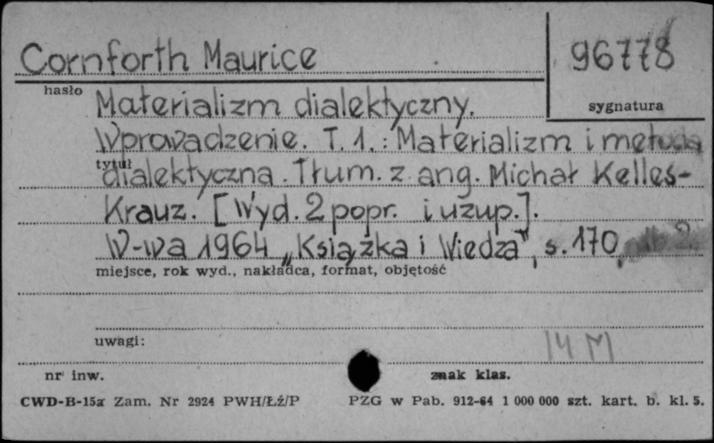 Cornforth Maurice
96778
hasło
sygnatura
Materializm dialektyczny.
Wprowadzenie. T. 1.: Materializm i metoda
tytuł
dialektyczna. Tłum. z ang. Michał Kelles-
Krauz. [Wyd. 2 popr. i uzup.].
W-wa 1964 „Książka i Wiedza", s. 170,
miejsce, rok wyd., nakładca, format, objętość
uwagi:
14 M
nr inw.
znak klas.
CWD-B-15a Zam. Nr 2924 PWH/Łź/P
PZG w Pab. 912-64 1 000 000 szt. kart. b. kl. 5.